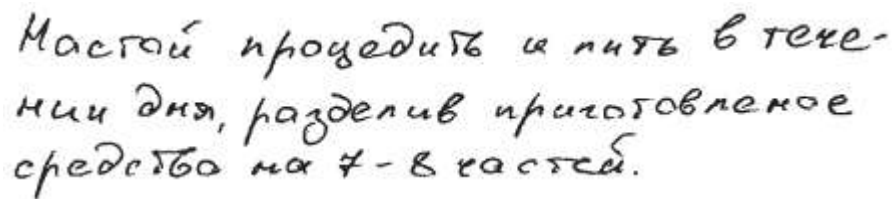 Настой процедить и пить в тече-
нии дня, разделив приготовленое
средство на 7-8 частей.